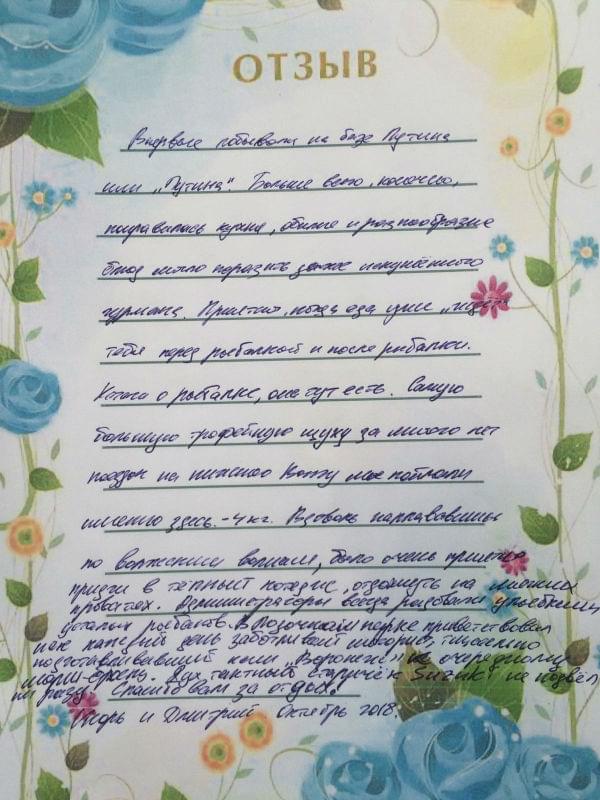 ОТЗЫВ
Впервые побывали на базе Путина
или „Путина“. Больше всего, конечно,
понравилась кухня, обилие и разнообразие
блюд могло поразить даже искушённого
гурмана. Приятно, когда еда уже „ждёт“
тебя перед рыбалкой и после рыбалки.
Кстати о рыбалке, она тут есть. Самую
большую трофейную щуку за много лет
поездок на нижнюю Волгу мы поймали
именно здесь. - 4 кг. Вдоволь наплававшись
по волжским волнам, было очень приятно
придти в тёплый котедж, отдохнуть на мягких
кроватях. Администраторы всегда радовали улыбками
усталых рыбаков. В лодочном парке приветствовал
нас каждый день заботливый моторист, тщательно
подготавливавший наш „Воронеж“ к очередному
шторм-. Да и тактный старичёк Suzuki не подвёл
ни разу. Спасибо вам за отдых!
Игорь и Дмитрий Октябрь 2018.